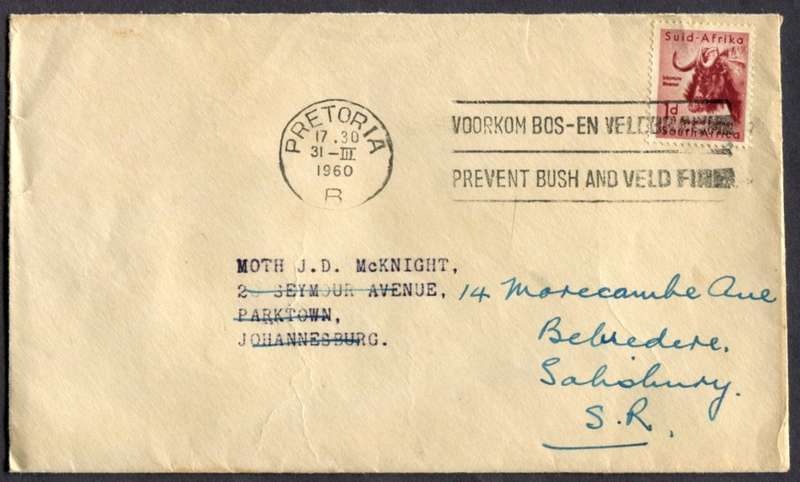 Suid-Afrika
1d
South Africa
PRETORIA
17.30
31-III
1960
B
VOORKOM BOS-EN VELDBRANDE
PREVENT BUSH AND VELD FIRES
MOTH J.D. McKNIGHT,
SEYMOUR AVENUE, 14 Morecambe Ave
PARKTOWN,
JOHANNESBURG.
Belvedere.
Salisbury.
S.R.